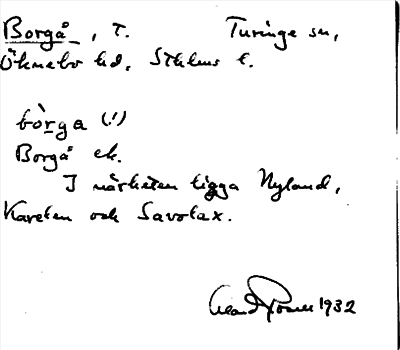 Borgå, T. Turinge sn,
Öknebo hd. Sthlms l.
bòrga (!)
Borgå ek.
I närheten ligga Nyland,
Karelen och Savolax.
1932